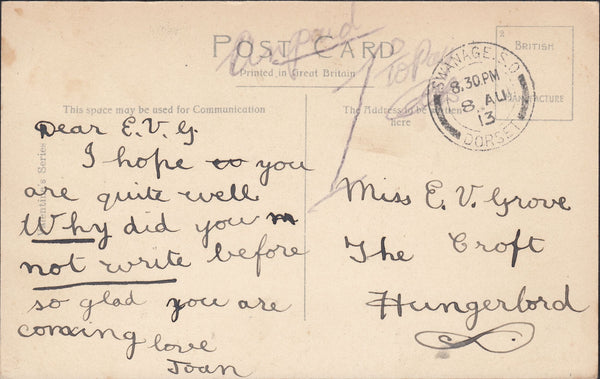 POST CARD
Unpaid
To Pay
Printed in Great Britain
BRITISH
MANUFACTURE
SWANAGE. S.O.
8.30 PM
8 AU
13
DORSET
This space may be used for Communication
The Address to be written
here
Dear E. V. G.
I hope you
are quite well
Why did you
not write before
so glad you are
coming love
Joan
Miss E. V. Grove
The Croft
Hungerford